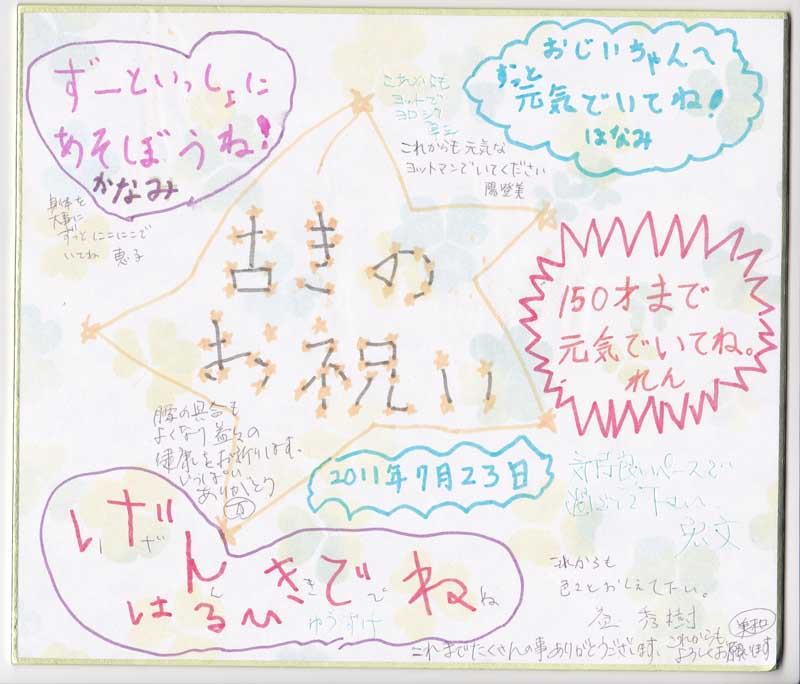 ずーといっしょに
あそぼうね!
かなみ
これからも
ヨットで
ヨロシク
おじいちゃんへ
ずっと
元気でいてね!
はなみ
これからも元気な
ヨットマンでいてください
陽登美
身体を
大事に
ずっとにこにこで
いてね 恵子
古きの
お祝い
150才まで
元気でいてね。
れん
腰の具合も
よくなり益々の
健康をお祈りします。
いっぱい
ありがとう
2011年7月23日
過ごして下さい
宏文
げん
きでね
はるい
ゆうすけ
これからも
色々とおしえて下さい。
秀樹
これまでたくさんの事ありがとうございます。
これからも
よろしくお願いします